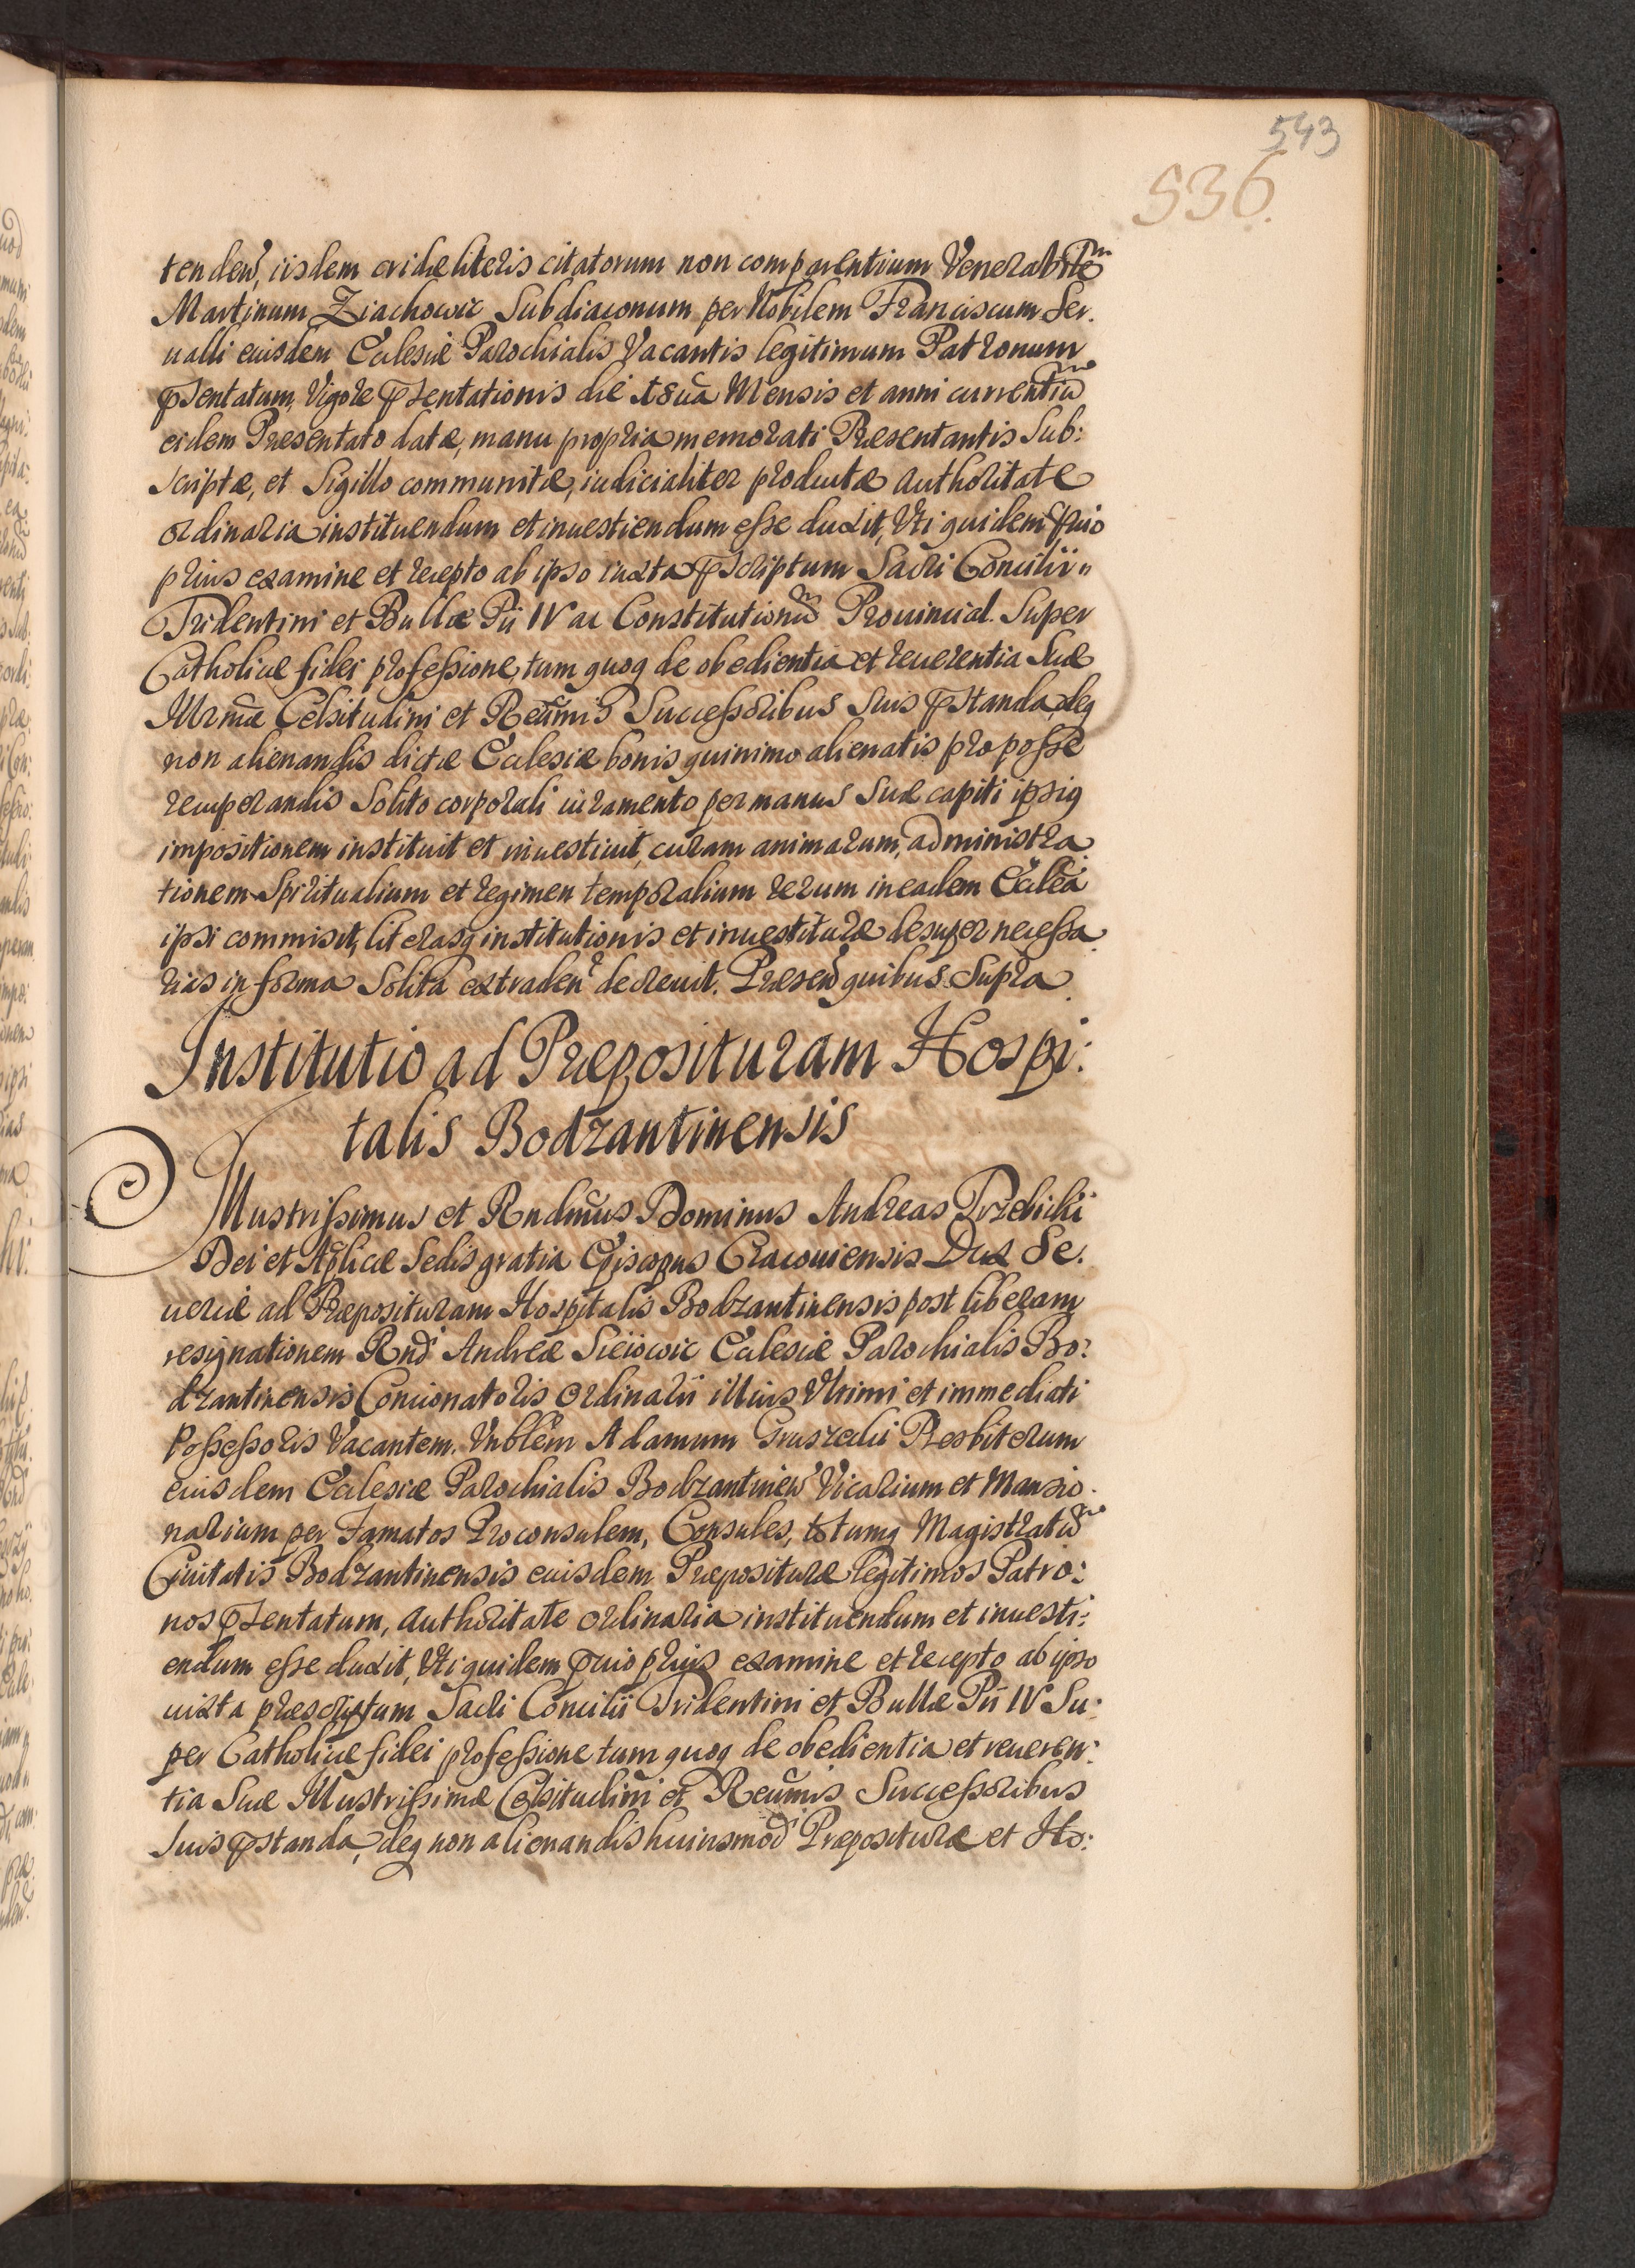 543
536.
tenden̄, iisdem cridæ literis citatorum non comparentium Venerabilem
Martinum Ziachowic Subdiaconum per Nobilem Franciscum Ser.
ualli eiusdem Ecclesiæ Parochialis Vacantis legitimum Patronum
pꝛsentatum, Vigore pꝛsentationis die 18ua Mensis et anni currentium
eidem Presentato datæ, manu propria memorati Præsentantis Sub:
scriptæ, et Sigillo communitæ, iudicialiter productæ Authoritate
ordinaria instituendum et inuestiendum esse duxit, Vti quidem pꝛuio
prius examine et recepto ab ipso iuxta pꝛscriptum Sacri Concilii
Tridentini et Bullæ Pii IV ac Constitutionum Prouincial. Super
Catholicæ fidei professione, tum quoq de obedientia et reuerentia Suæ
Illrmæ Celsitudini et Reūmis Successoribus Suis pꝛstanda, deq
non alienandis dictæ Ecclesiæ bonis quinimo alienatis pro posse
recuperandis Solito corporali iuramento per manus Suæ capiti ipsiq
impositionem instituit et inuestiuit, curam animarum, administra
tionem Spiritualium et regimen temporalium rerum in eadem Ecclēa
ipsi commisit, literasq institutionis et inuestituræ desuper necessa
rias in forma Solita extraden̄ decreuit. Presen̄ quibus Supra
Institutio ad Præposituram Hospi:
talis Bodzantinensis
Illustrissimus et Rndmūs Dominus Andreas Trzebicki
Dei et Aplicæ Sedis gratia Episcopus Cracouiensis Dux Se.
ueriæ ad Præposituram Hospitalis Bodzantinensis post liberam
resignationem Rndi Andreæ Sciiowic Ecclesiæ Parochialis Bo:
dzantinensis Concionatoris Ordinarii illius Vltimi et immediati
Possessoris Vacantem. Vnblēm Adamum Gruszecki Presbiterum
eiusdem Ecclesiæ Parochialis Bodzantinen̄ Vicarium et Mansio.
narium per Famatos Proconsulem, Consules, totumq Magistratum
Ciuitatis Bodzantinensis eiusdem Præpositurae legitimos Patro:
nos pꝛsentatum, Authoritate Ordinaria instituendum et inuesti:
endum esse duxit, Vti quidem pꝛuio prius examine et recepto ab ipso
iuxta præscriptum Sacri Concilii Tridentini et Bullæ Pii IV Su:
per Catholicæ fidei professione tum quoq de obedientia et reueren:
tia Suæ Illustrissimæ Celsitudini et Reūmis Successoribus
Suis pꝛstanda, deq non alienandis huiusmodi Præpositurae et Ho: